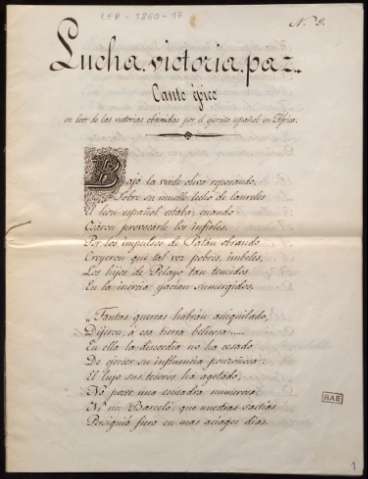 CER-1860-17
N.º 9.
Lucha, victoria, paz..
Canto épico
en loor de las victorias obtenidas por el ejército español en África.
Bajo la verde oliva reposando,
Sobre su mullido lecho de laureles
El león español estaba, cuando
Osaron provocarle los infieles.
Por los impulsos de Satán obrando
Creyeron que tal vez pobres, imbeles,
Los hijos de Pelayo tan temidos
En la inercia yacían sumergidos.
„Tantas guerras habrán aniquilado,
Dijeron, á esa tierra belicosa.....
En ella la discordia no ha cesado
De ejercer su influencia ponzoñosa:
El lujo sus tesoros ha agotado;
No posee una escuadra numerosa;
Ni un Barceló, que nuestras
Persiguió fiero en mas aciagos dias.
RAE
1